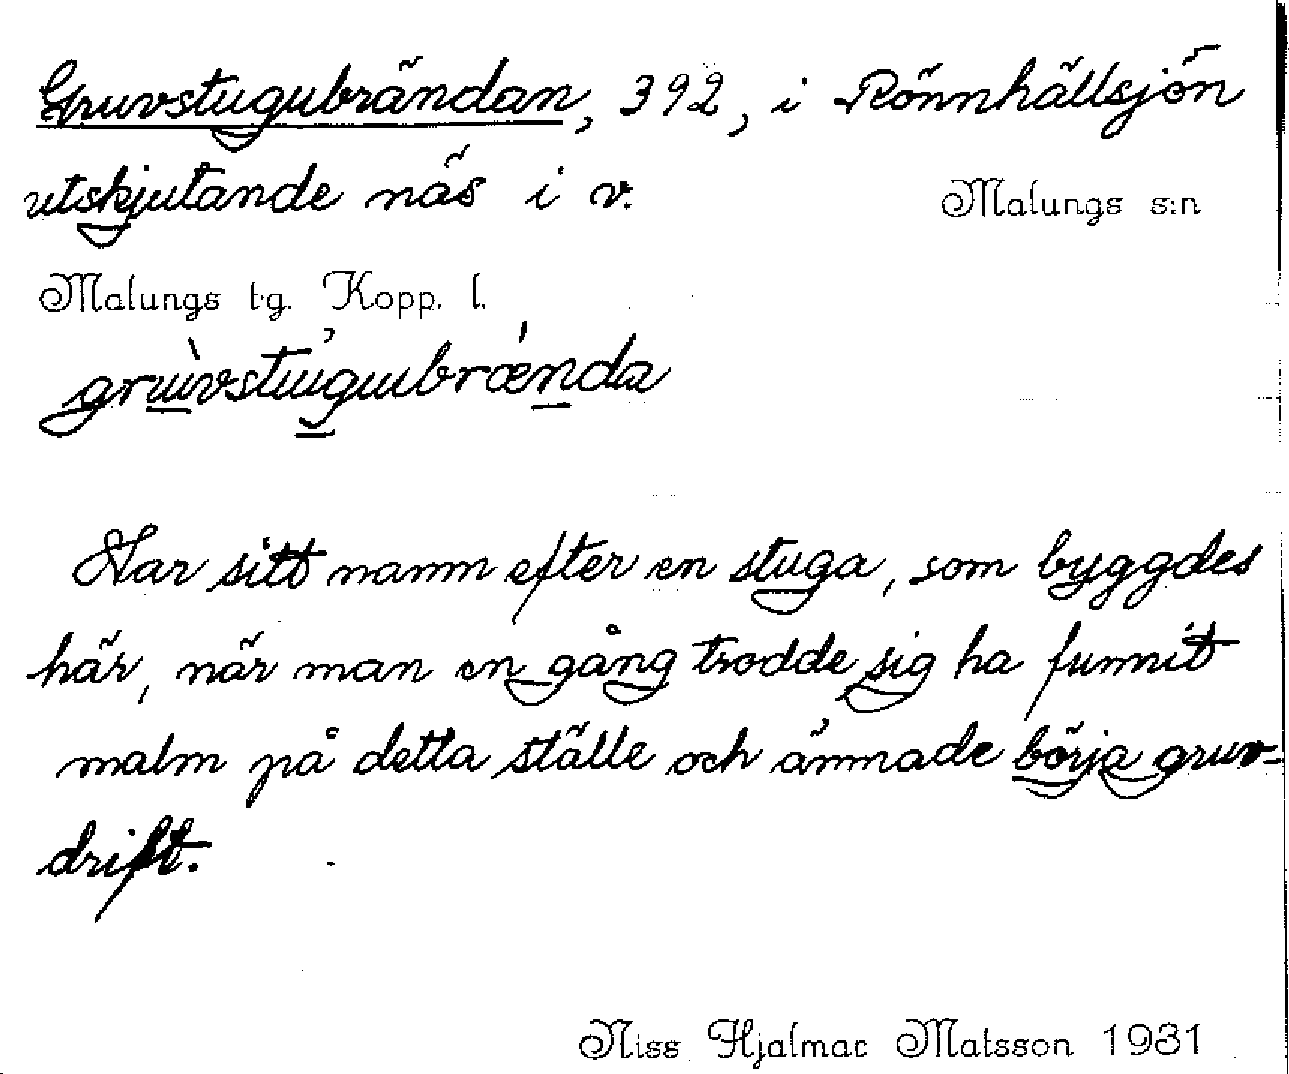 Gruvstugubrändan, 392, i Rönnhällsjön
utskjutande näs i v.
Malungs s:n
Malungs tg. Kopp. l.
grùvstugubrǽnda
Har sitt namn efter en stuga, som byggdes
här, när man en gång trodde sig ha funnit
malm på detta ställe och ämnade börja gruv-
drift.
Niss Hjalmar Matsson 1931